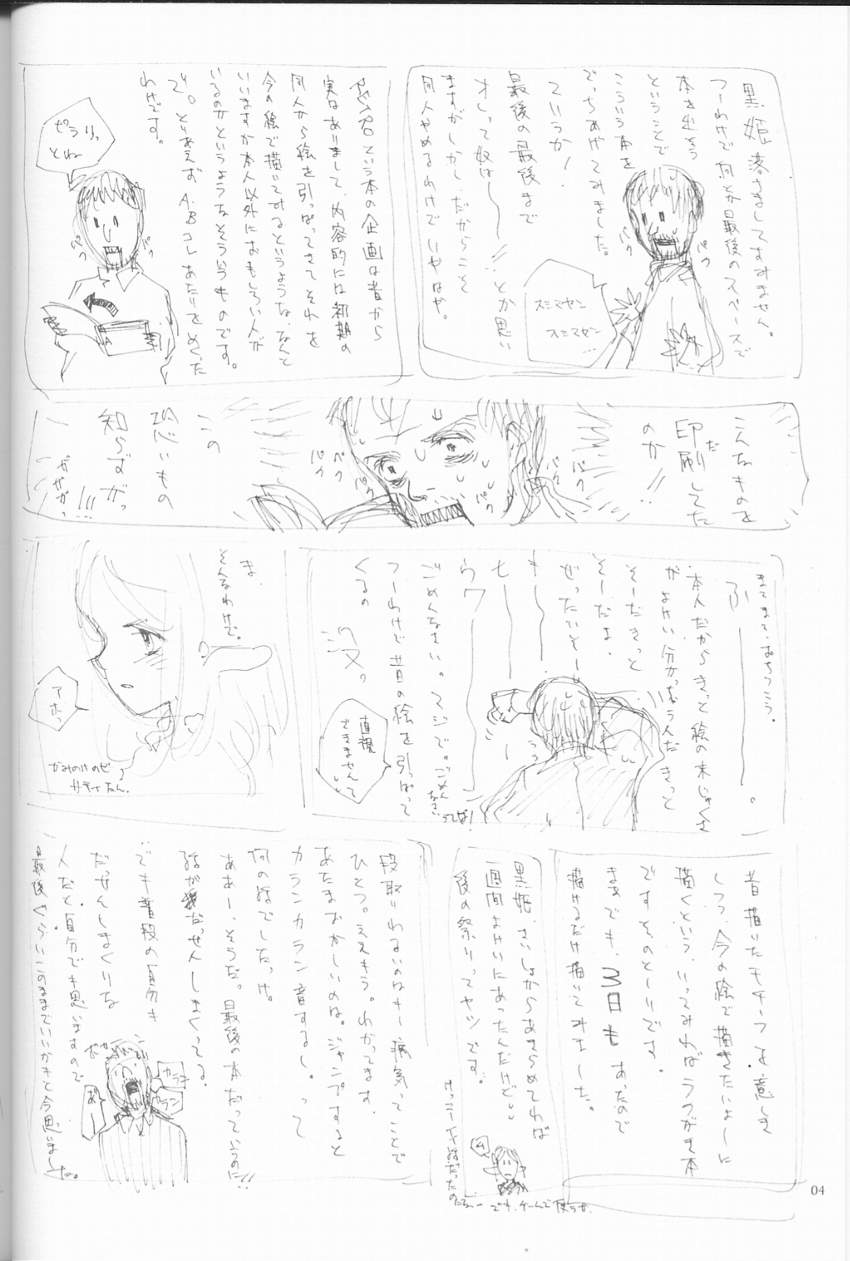 黒姫落としましてすみません。
つーわけで何とか最後のスペースで
本を出そう
ということで
こういう本を
でっちあげてみました。
ていうか!
最後の最後まで
オレって奴は〜〜!!とか思い
ますがしかし、だからこそ
同人やめるわけでいやはや。
スミマセン
スミマセン…
パク
パク
という本の企画は昔から
実はありまして、内容的には初期の
同人から絵を引っぱってきてそれを
今の絵で描いてみるというような、なんて
いいますか本人以外におもしろい人が
いるのかというようなそういうものです。
で。とりあえず A・Bコレあたりをめくった
わけです。
ピラリっ
とね
パク
パク
A
こんなものを
印刷してた
だ
のか!!
パク
パク
パク
パク
この
恐いもの
知らずがっ
ガガガっ!!!
まてまて、おちつこう。
ふ———。
本人だからきっと絵の未じゅくさ
がよけい分かっちゃうんだきっと
そーだきっと
そーだよ
ぜったいそー
キ——
モ——
ウワ——
ごめんなさい。マジで。ごめんなさいってば!
つーわけで昔の絵を引っぱって
くるの
没っ
直視
できませんて
ま、
そんなわけで。
アホっ
かみのけのせ
サティたん。
昔描いたモチーフを意しき
しつつ、今の絵で描きたいよーに
描くという、いってみればらくがき本
ですそのとーりです。
まあでも、3日もあったので
描けるだけ描いてみました。
黒姫、さいしょからあきらめてれば
一週間よけいにあったんだけど。
後の祭りってヤツです。
段取りわるいのはもー病気ってことで
ひとつ。ええもう。わかってます。
あたまおかしいのは。ジャンプすると
カランカラン音するし。って
何の話でしたっけ。
ああー、そうだ。最後の本だっていうのに!!
話がだっせんしまくってる。
でも普段の自分も
だっせんしまくりな
人だと自分でも思いますので
最後くらいこのままでいいかもと今思いました。
カラン
カラン
04